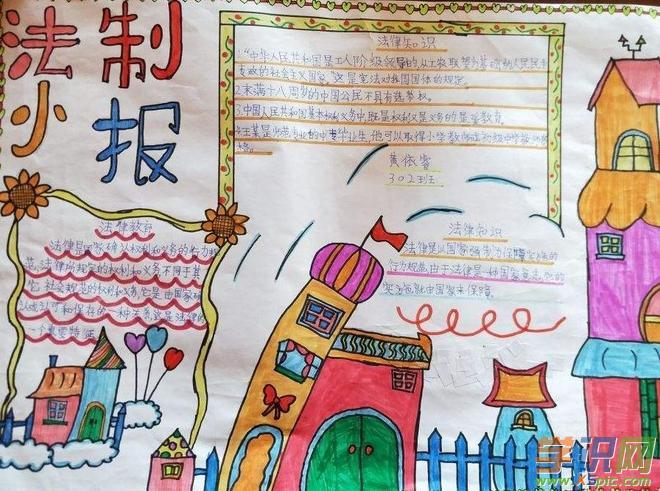 法制
小报
法律知识
1."中华人民共和国是工人阶级领导的,以工农联盟为基础的人民民主
专政的社会主义国家"这是宪法对我国国体的规定。
2.未满十八周岁的中国公民不具有选举权。
3.中国人民共和国基本权利义务中,既是权利又是义务的是受教育。
4.王某是师范专业的中专毕业生,他可以取得小学教师或初级中学教师
格。
黄依睿
302班
法律教育
法律是国家确认权利和义务的行为规
范,法律所规定的权利和义务不同于其
它社会规范的权利和义务,它是由国家确
认或认可和保存的一种关系,这是法律的
一个重要特征
法律知识
法律是以国家强制力保障实施的
行为规范,由于法律是一种国家意志,它的
实施就由国家来保障
学识网
www.xspic.com